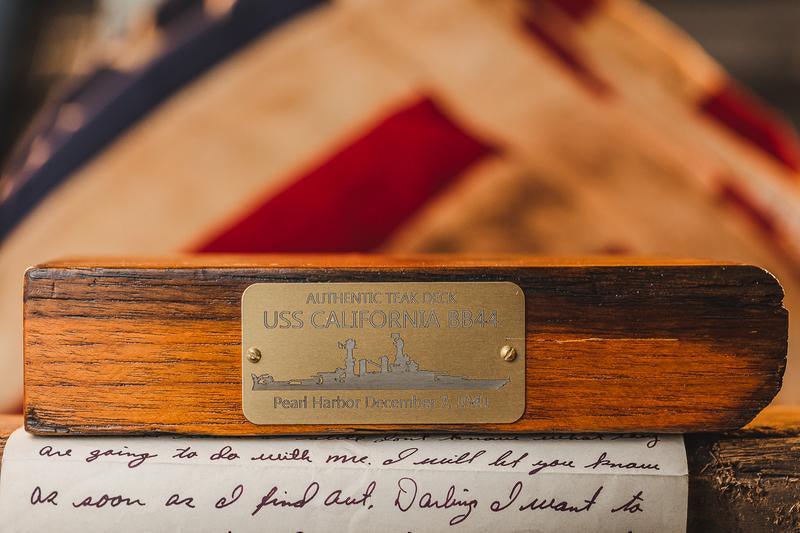 AUTHENTIC TEAK DECK
USS CALIFORNIA BB44
Pearl Harbor December 7, 1941
don't know what they
are going to do with me. I will let you know
as soon as I find out. Darling I want to